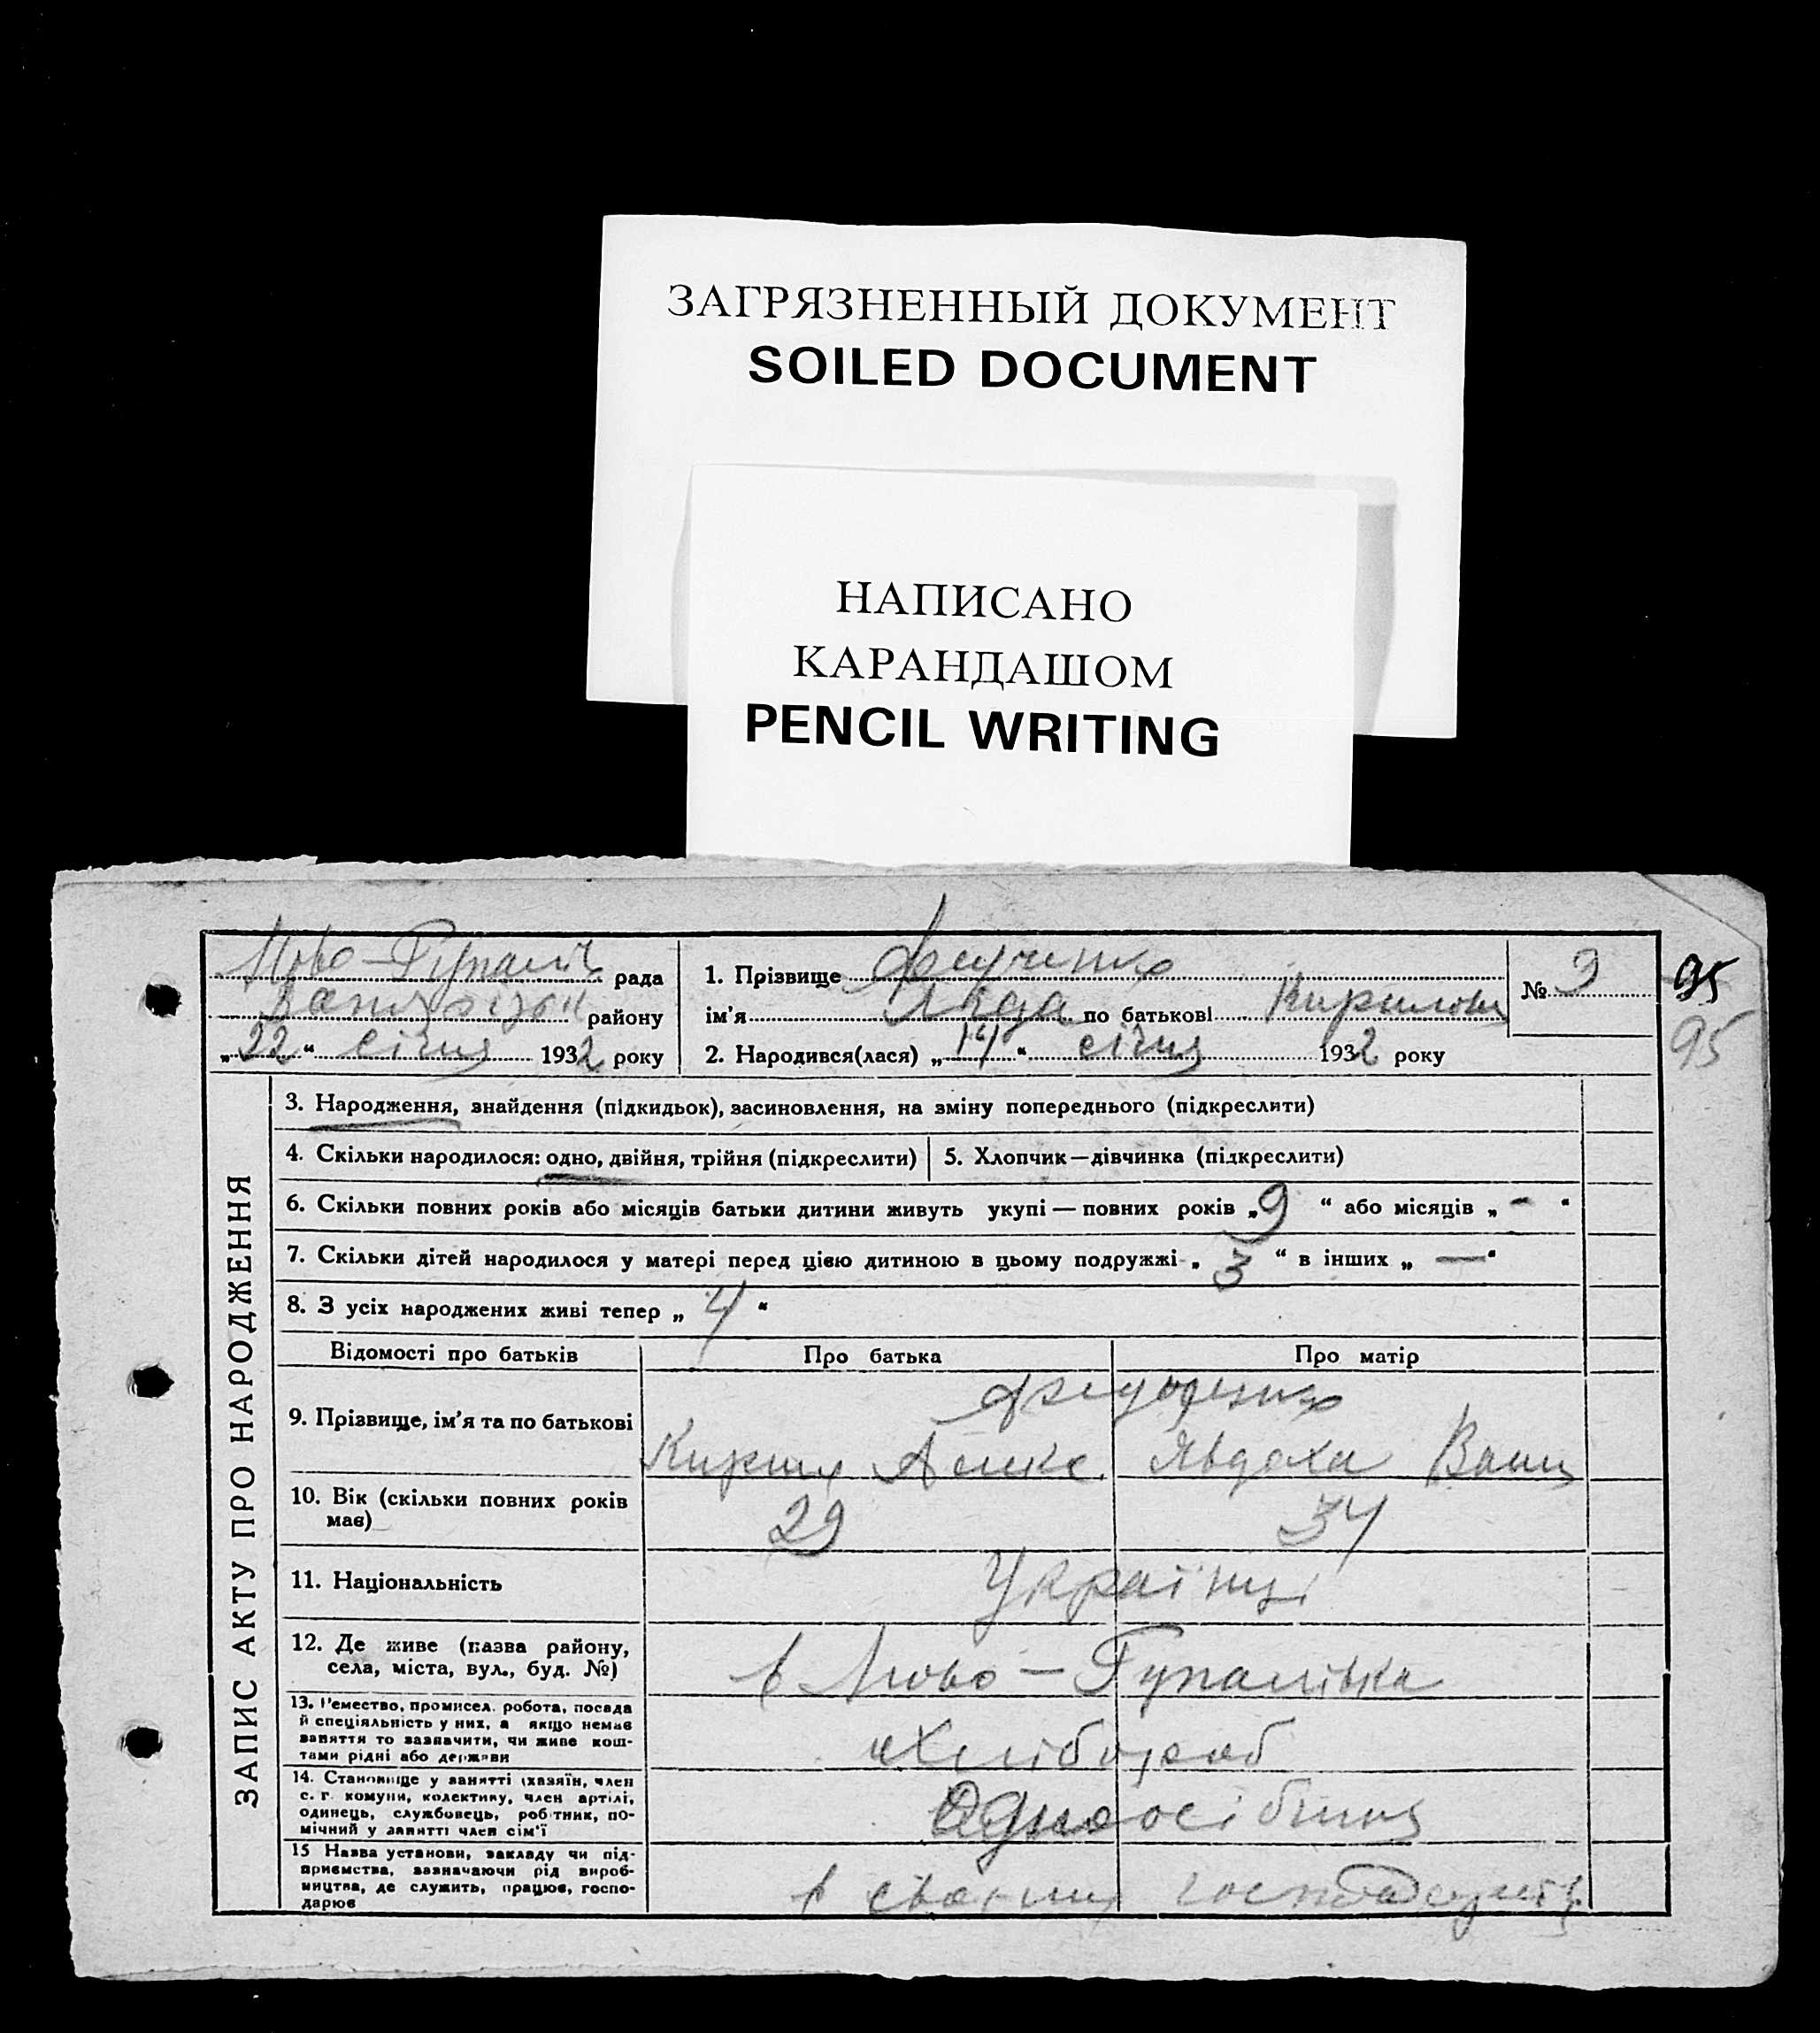 ЗАГРЯЗНЕННЫЙ ДОКУМЕНТ
SOILED DOCUMENT
НАПИСАНО
КАРАНДАШОМ
PENCIL WRITING
рада
району
„22“ січня 1932 року
1. Прізвище
ім'я по батькові
2. Народився(лася) „14“ січня 1932 року
№ 9
95
95
ЗАПИС АКТУ ПРО НАРОДЖЕННЯ
3. Народження, знайдення (підкидьок), засиновлення, на зміну попереднього (підкреслити)
4. Скільки народилося: одно, двійня, трійня (підкреслити)
5. Хлопчик—дівчинка (підкреслити)
6. Скільки повних років або місяців батьки дитини живуть укупі — повних років „9“ або місяців „-“
7. Скільки дітей народилося у матері перед цією дитиною в цьому подружжі „3“ в інших „—“
8. З усіх народжених живі тепер „4“
Відомості про батьків Про батька Про матір
9. Прізвище, ім'я та по батькові
Явдоха
10. Вік (скільки повних років має) 29 34
11. Національність Українці
12. Де живе (назва району,
села, міста, вул., буд. №)
в Ново-Гупалівка
13. Ремество, промисел, робота, посада
й спеціяльність у них, а якщо немає
заняття то зазначити, чи живе кош-
тами рідні або держави
Хлібороб
14. Становище у занятті (хазяїн, член
с. г. комуни, колективу, член артілі,
одинець, службовець, робітник, по-
мічний у занятті член сім'ї
15 Назва установи, закладу чи під-
приємства, зазначаючи рід вироб-
ництва, де служить, працює, госпо-
дарює